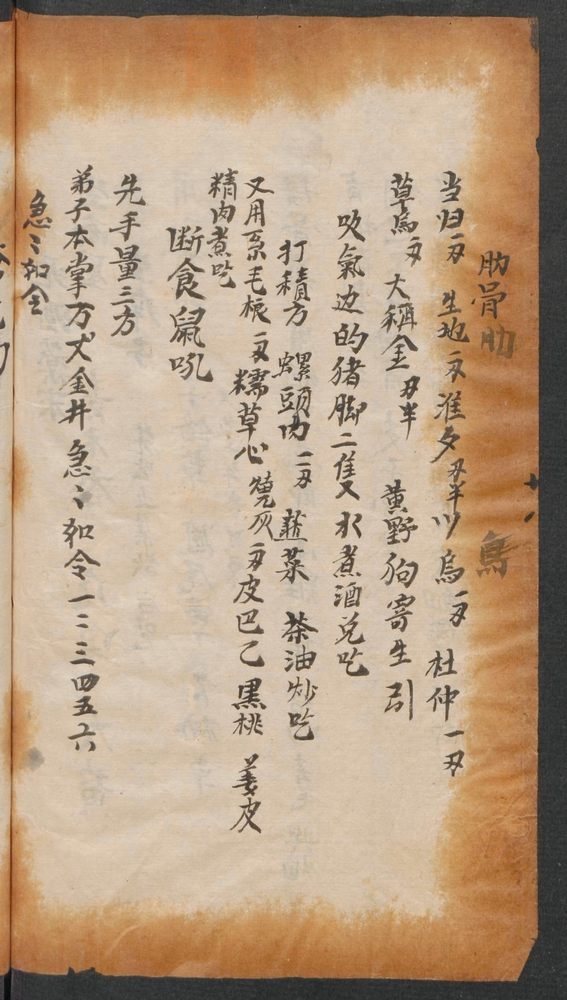 肋骨肋 烏
当归一刄 生地一刄 淮夕刄半 川烏一刄 杜仲一刄
草烏一刄 大稱金刄半 黄野狗寄生引
吹氣边的猪脚二隻 水煮酒兑吃
打積方 螺頭肉二刄 韮菜 茶油炒吃
又用系毛根一刄 糯草心 燒灰一刄 皮巴乙 黒桃 姜皮
精肉煮吃
断食鼠吼
先手量三方
弟子本掌万丈金井急〻如令一二三四五六
急〻如令